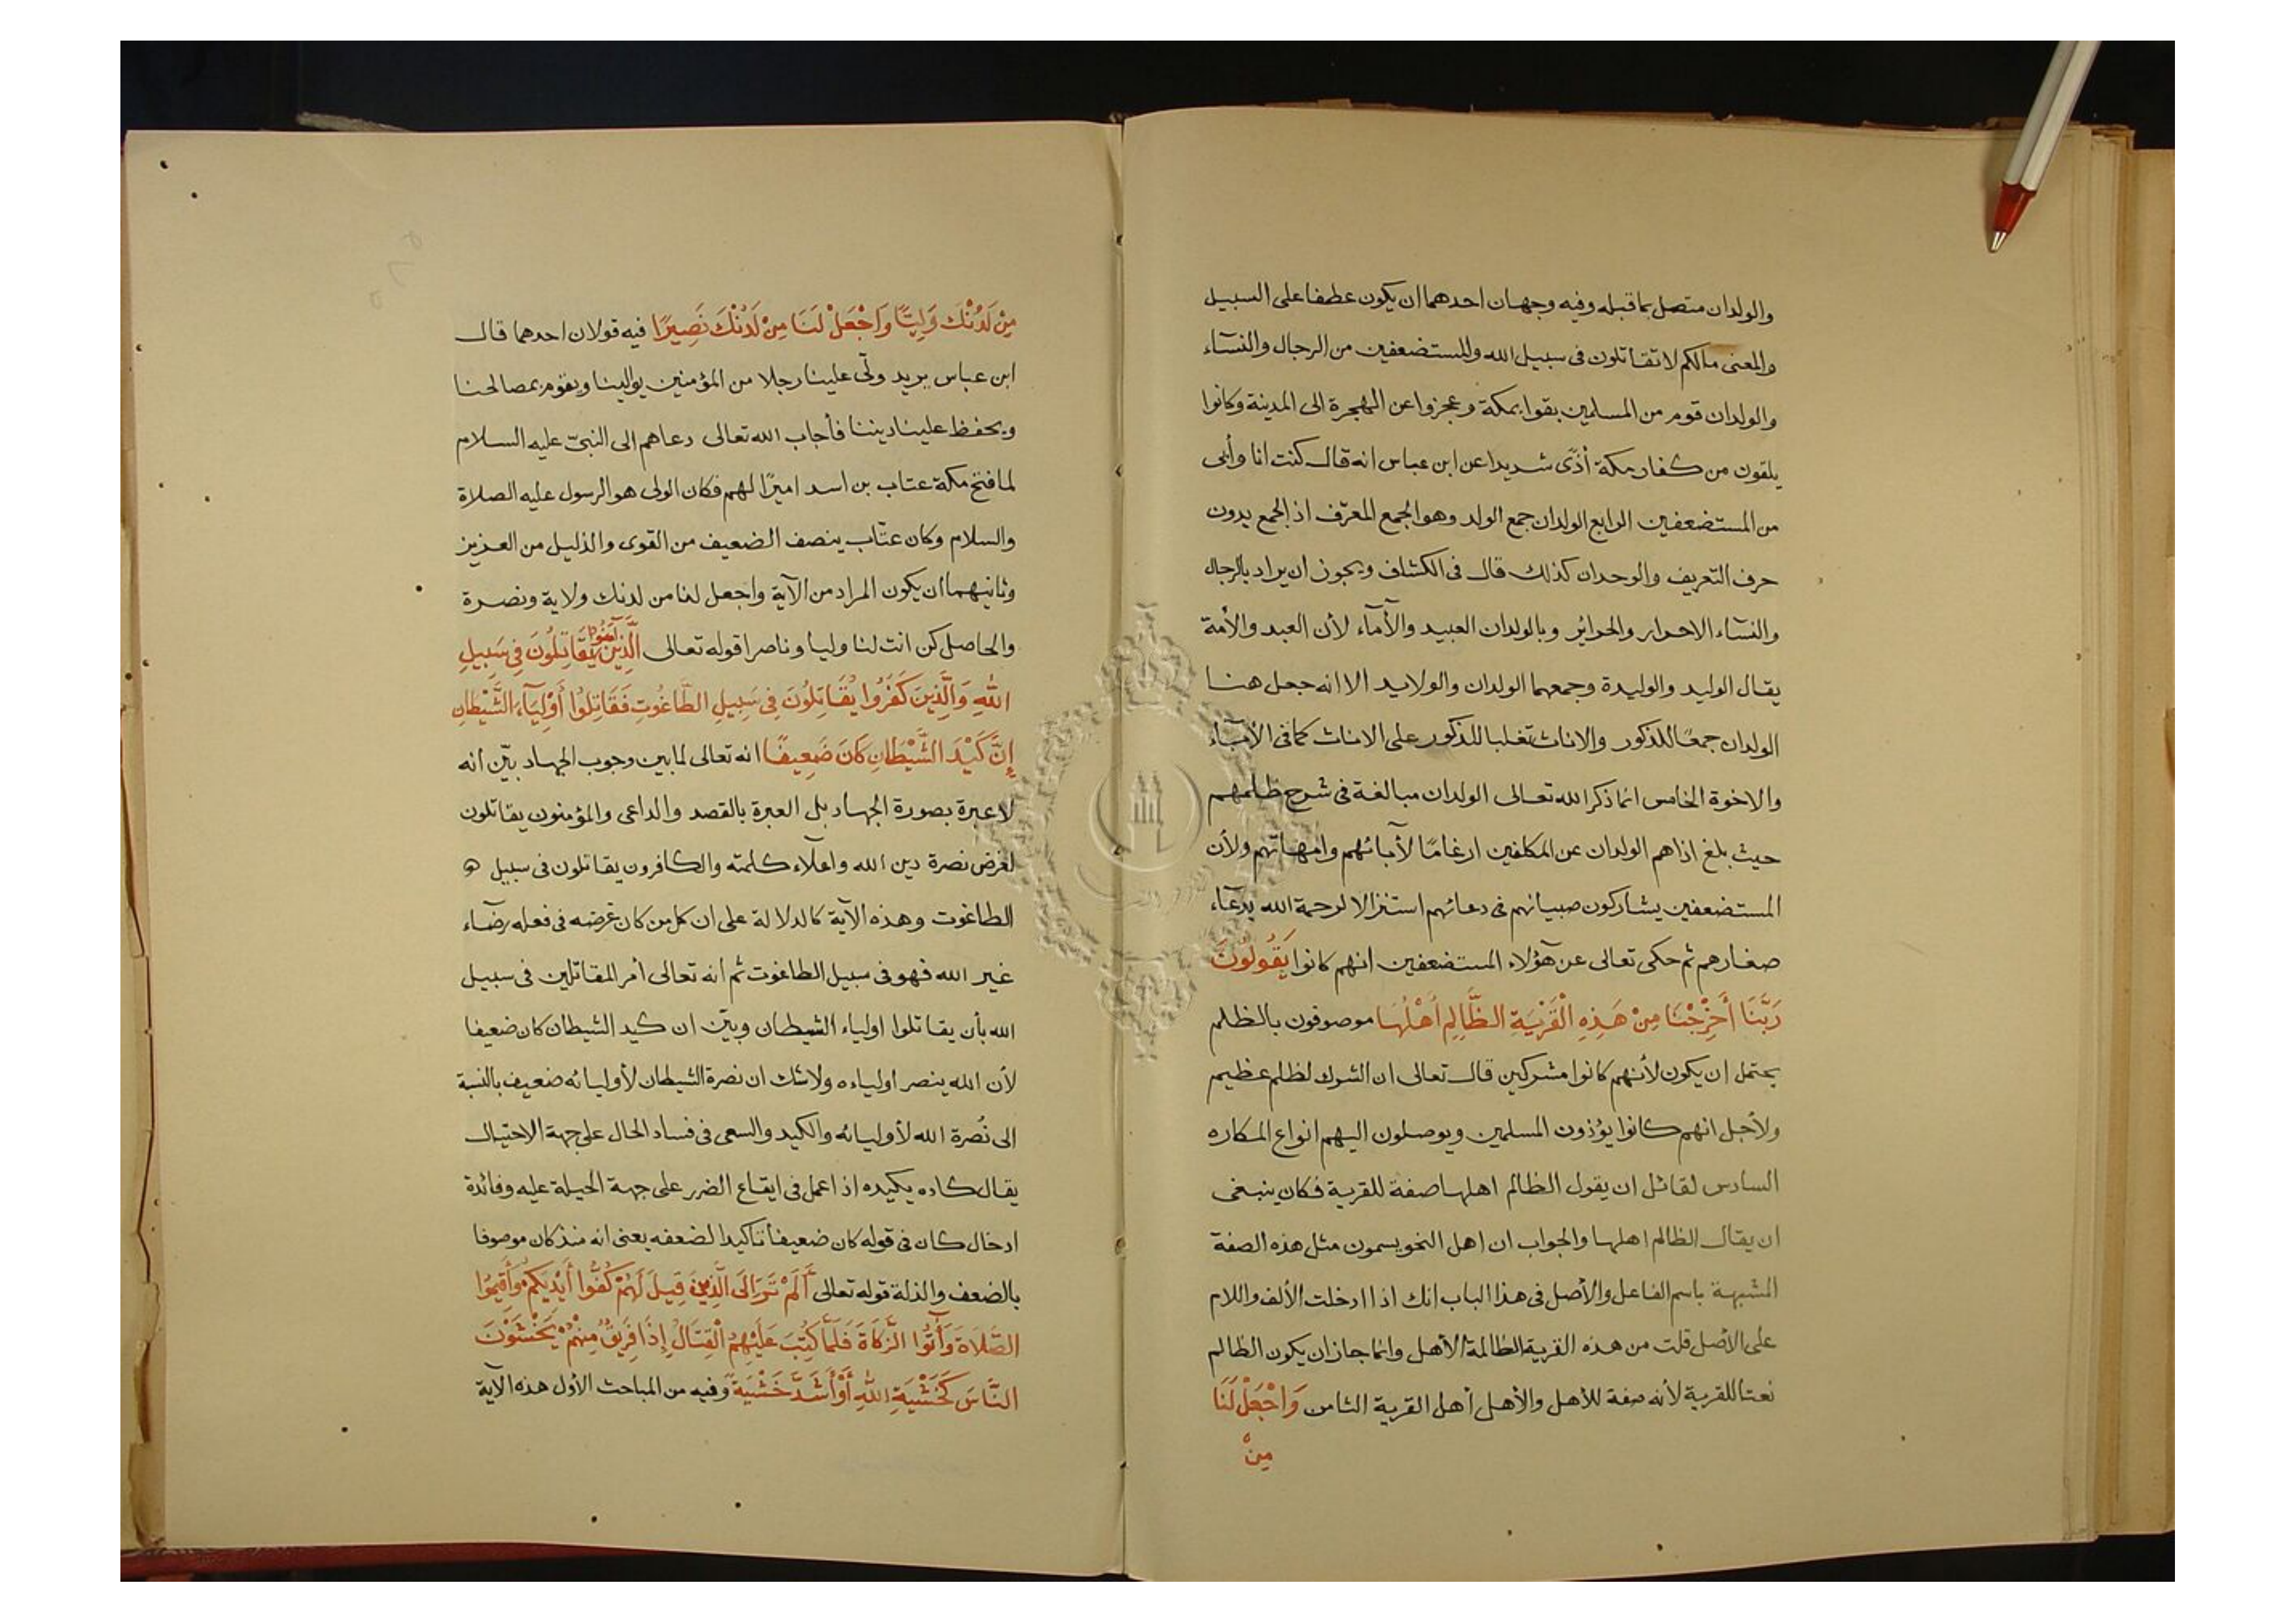 والولدان متصل بما قبله وفيه وجهان احدهما ان يكون عطفا على السبيل
والمعنى مالكم لا تقاتلون فى سبيل الله وللمستضعفين من الرجال والنسآء
والولدان قوم من المسلمين بقوا بمكة وعجزوا عن الهجرة الى المدينة وكانوا
يلقون من كفار مكة أذًى شديدا عن ابن عباس انه قال كنت انا وأبى
من المستضعفين الرابع الولدان جمع الولد وهو الجمع المعرّف اذ الجمع بدون
حرف التعريف والوحدان كذلك قال فى الكشاف ويجوز ان يراد بالرجال
والنسآء الاحرار والحرائر وبالولدان العبيد والأمآء لأن العبد والأمة
يقال الوليد والوليدة وجمعهما الولدان والولايد الا انه جعل هنا
الولدان جمعًا للذكور والاناث تغلبا للذكور على الاناث كما فى الأبآء
والاخوة الخامس انما ذكر الله تعالى الولدان مبالغة فى شرح ظلمهم
حيث بلغ اذاهم الولدان عن المكلفين ارغامًا لأبائهم وامهاتهم ولأن
المستضعفين يشاركون صبيانهم فى دعائهم استنزالا لرحمة الله بدعآء
صغارهم ثم حكى تعالى عن هؤلاء المستضعفين انهم كانوا يَقُولُونَ
رَبَّنَا أَخْرِجْنَا مِنْ هَذِهِ الْقَرْيَةِ الظَّالِمِ أَهْلُهَا موصوفون بالظلم
يحتمل ان يكون لأنهم كانوا مشركين قال تعالى ان الشرك لظلم عظيم
ولأجل انهم كانوا يؤذون المسلمين ويوصلون اليهم انواع المكاره
السادس لقائل ان يقول الظالم اهلها صفة للقرية فكان ينبغى
ان يقال الظالم اهلها والجواب ان اهل النحو يسمون مثل هذه الصفة
المشبهة باسم الفاعل والأصل فى هذا الباب انك اذا ادخلت الألف واللام
على الأصل قلت من هذه القرية الظالمة الأهل وانما جاز ان يكون الظالم
نعتا للقرية لأنه صفة للأهل والأهل أهل القرية الثامن وَاجْعَلْ لَنَا
مِنْ
مِنْ لَدُنْكَ وَلِيًّا وَاجْعَلْ لَنَا مِنْ لَدُنْكَ نَصِيرًا فيه قولان احدهما قال
ابن عباس يريد ولّى علينا رجلا من المؤمنين يوالينا ويقوم بمصالحنا
ويحفظ علينا ديننا فأجاب الله تعالى دعاهم الى النبىّ عليه السلام
لما فتح مكة عتاب بن اسد اميرًا لهم فكان الولى هو الرسول عليه الصلاة
والسلام وكان عتّاب ينصف الضعيف من القوى والذليل من العزيز
وثانيهما ان يكون المراد من الآية واجعل لنا من لدنك ولاية ونصرة
والحاصل كن انت لنا وليا وناصرا قوله تعالى الَّذِينَ آمَنُوا يُقَاتِلُونَ فِى سَبِيلِ
اللهِ وَالَّذِينَ كَفَرُوا يُقَاتِلُونَ فِى سَبِيلِ الطَّاغُوتِ فَقَاتِلُوا أَوْلِيَآءَ الشَّيْطَانِ
إِنَّ كَيْدَ الشَّيْطَانِ كَانَ ضَعِيفًا انه تعالى لما بين وجوب الجهاد بيّن انه
لا عبرة بصورة الجهاد بل العبرة بالقصد والداعى والمؤمنون يقاتلون
لغرض نصرة دين الله واعلاء كلمته والكافرون يقاتلون فى سبيل
الطاغوت وهذه الآية كالدلالة على ان كل من كان غرضه فى فعله رضآء
غير الله فهو فى سبيل الطاغوت ثم انه تعالى أمر المقاتلين فى سبيل
الله بأن يقاتلوا اولياء الشيطان وبيّن ان كيد الشيطان كان ضعيفا
لأن الله ينصر اولياءه ولا شك ان نصرة الشيطان لأوليائه ضعيف بالنسبة
الى نُصرة الله لأوليائه والكيد والسعى فى فساد الحال على جهة الاحتيال
يقال كاده يكيده اذا عمل فى ايقاع الضرر على جهة الحيلة عليه وفائدة
ادخال كان فى قوله كان ضعيفا تاكيدا لضعفه يعنى انه منذ كان موصوفا
بالضعف والذلة قوله تعالى أَلَمْ تَرَ إِلَى الَّذِينَ قِيلَ لَهُمْ كُفُّوا أَيْدِيَكُمْ وَأَقِيمُوا
الصَّلَاةَ وَآتُوا الزَّكَاةَ فَلَمَّا كُتِبَ عَلَيْهِمُ الْقِتَالُ إِذَا فَرِيقٌ مِنْهُمْ يَخْشَوْنَ
النَّاسَ كَخَشْيَةِ اللهِ أَوْ أَشَدَّ خَشْيَةً وفيه من المباحث الأول هذه الآية